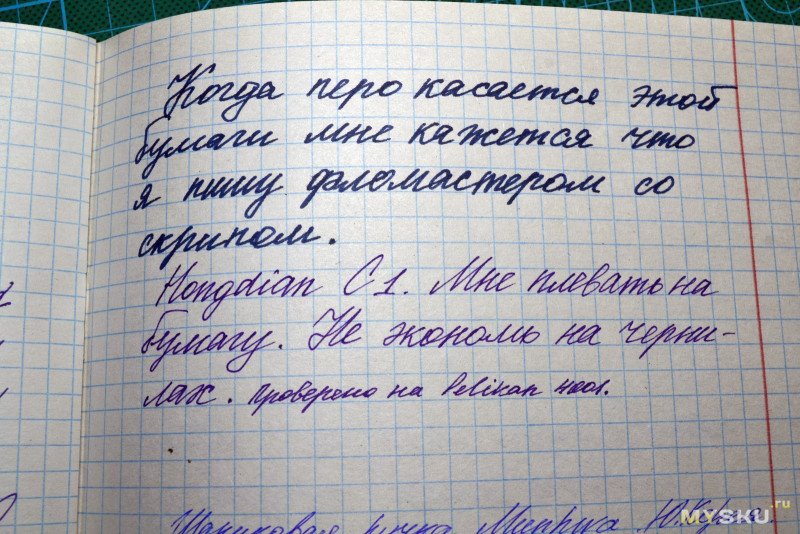 Когда перо касается этой
бумаги мне кажется что
я пишу фломастером со
скрипом.
Hongdian C1. Мне плевать на
бумагу. Не экономь на черни-
лах. Проверено на Pelikan 4001.
Шариковая ручка
MYSKU.ru